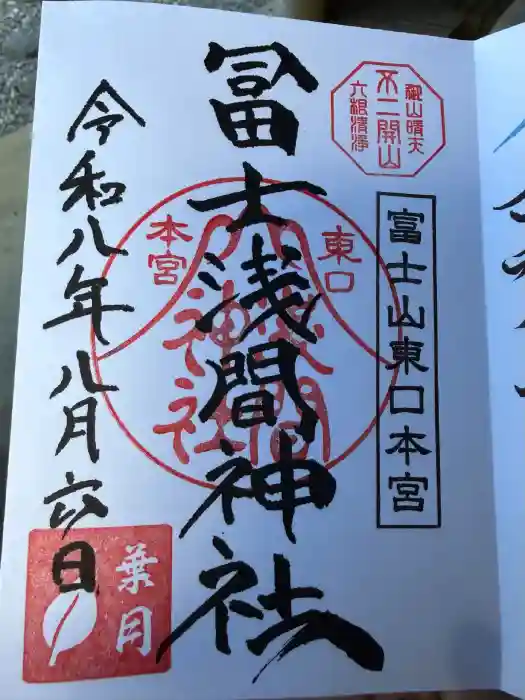 山晴天
不二開山
六根清浄
富士山東口本宮
冨士浅間神社
東口
本宮
間
神社
令和八年八月六日
葉月